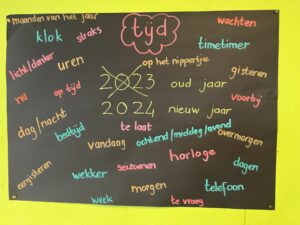 maanden van het jaar
tijd
wachten
klok
straks
timetimer
licht/donker
uren
op het nippertje
gisteren
nu
op tijd
2023 oud jaar
voorbij
2024 nieuw jaar
dag/nacht
bedtijd
te laat
vandaag
ochtend/middag/avond
overmorgen
eergisteren
wekker
seizoenen
horloge
dagen
morgen
telefoon
week
te vroeg